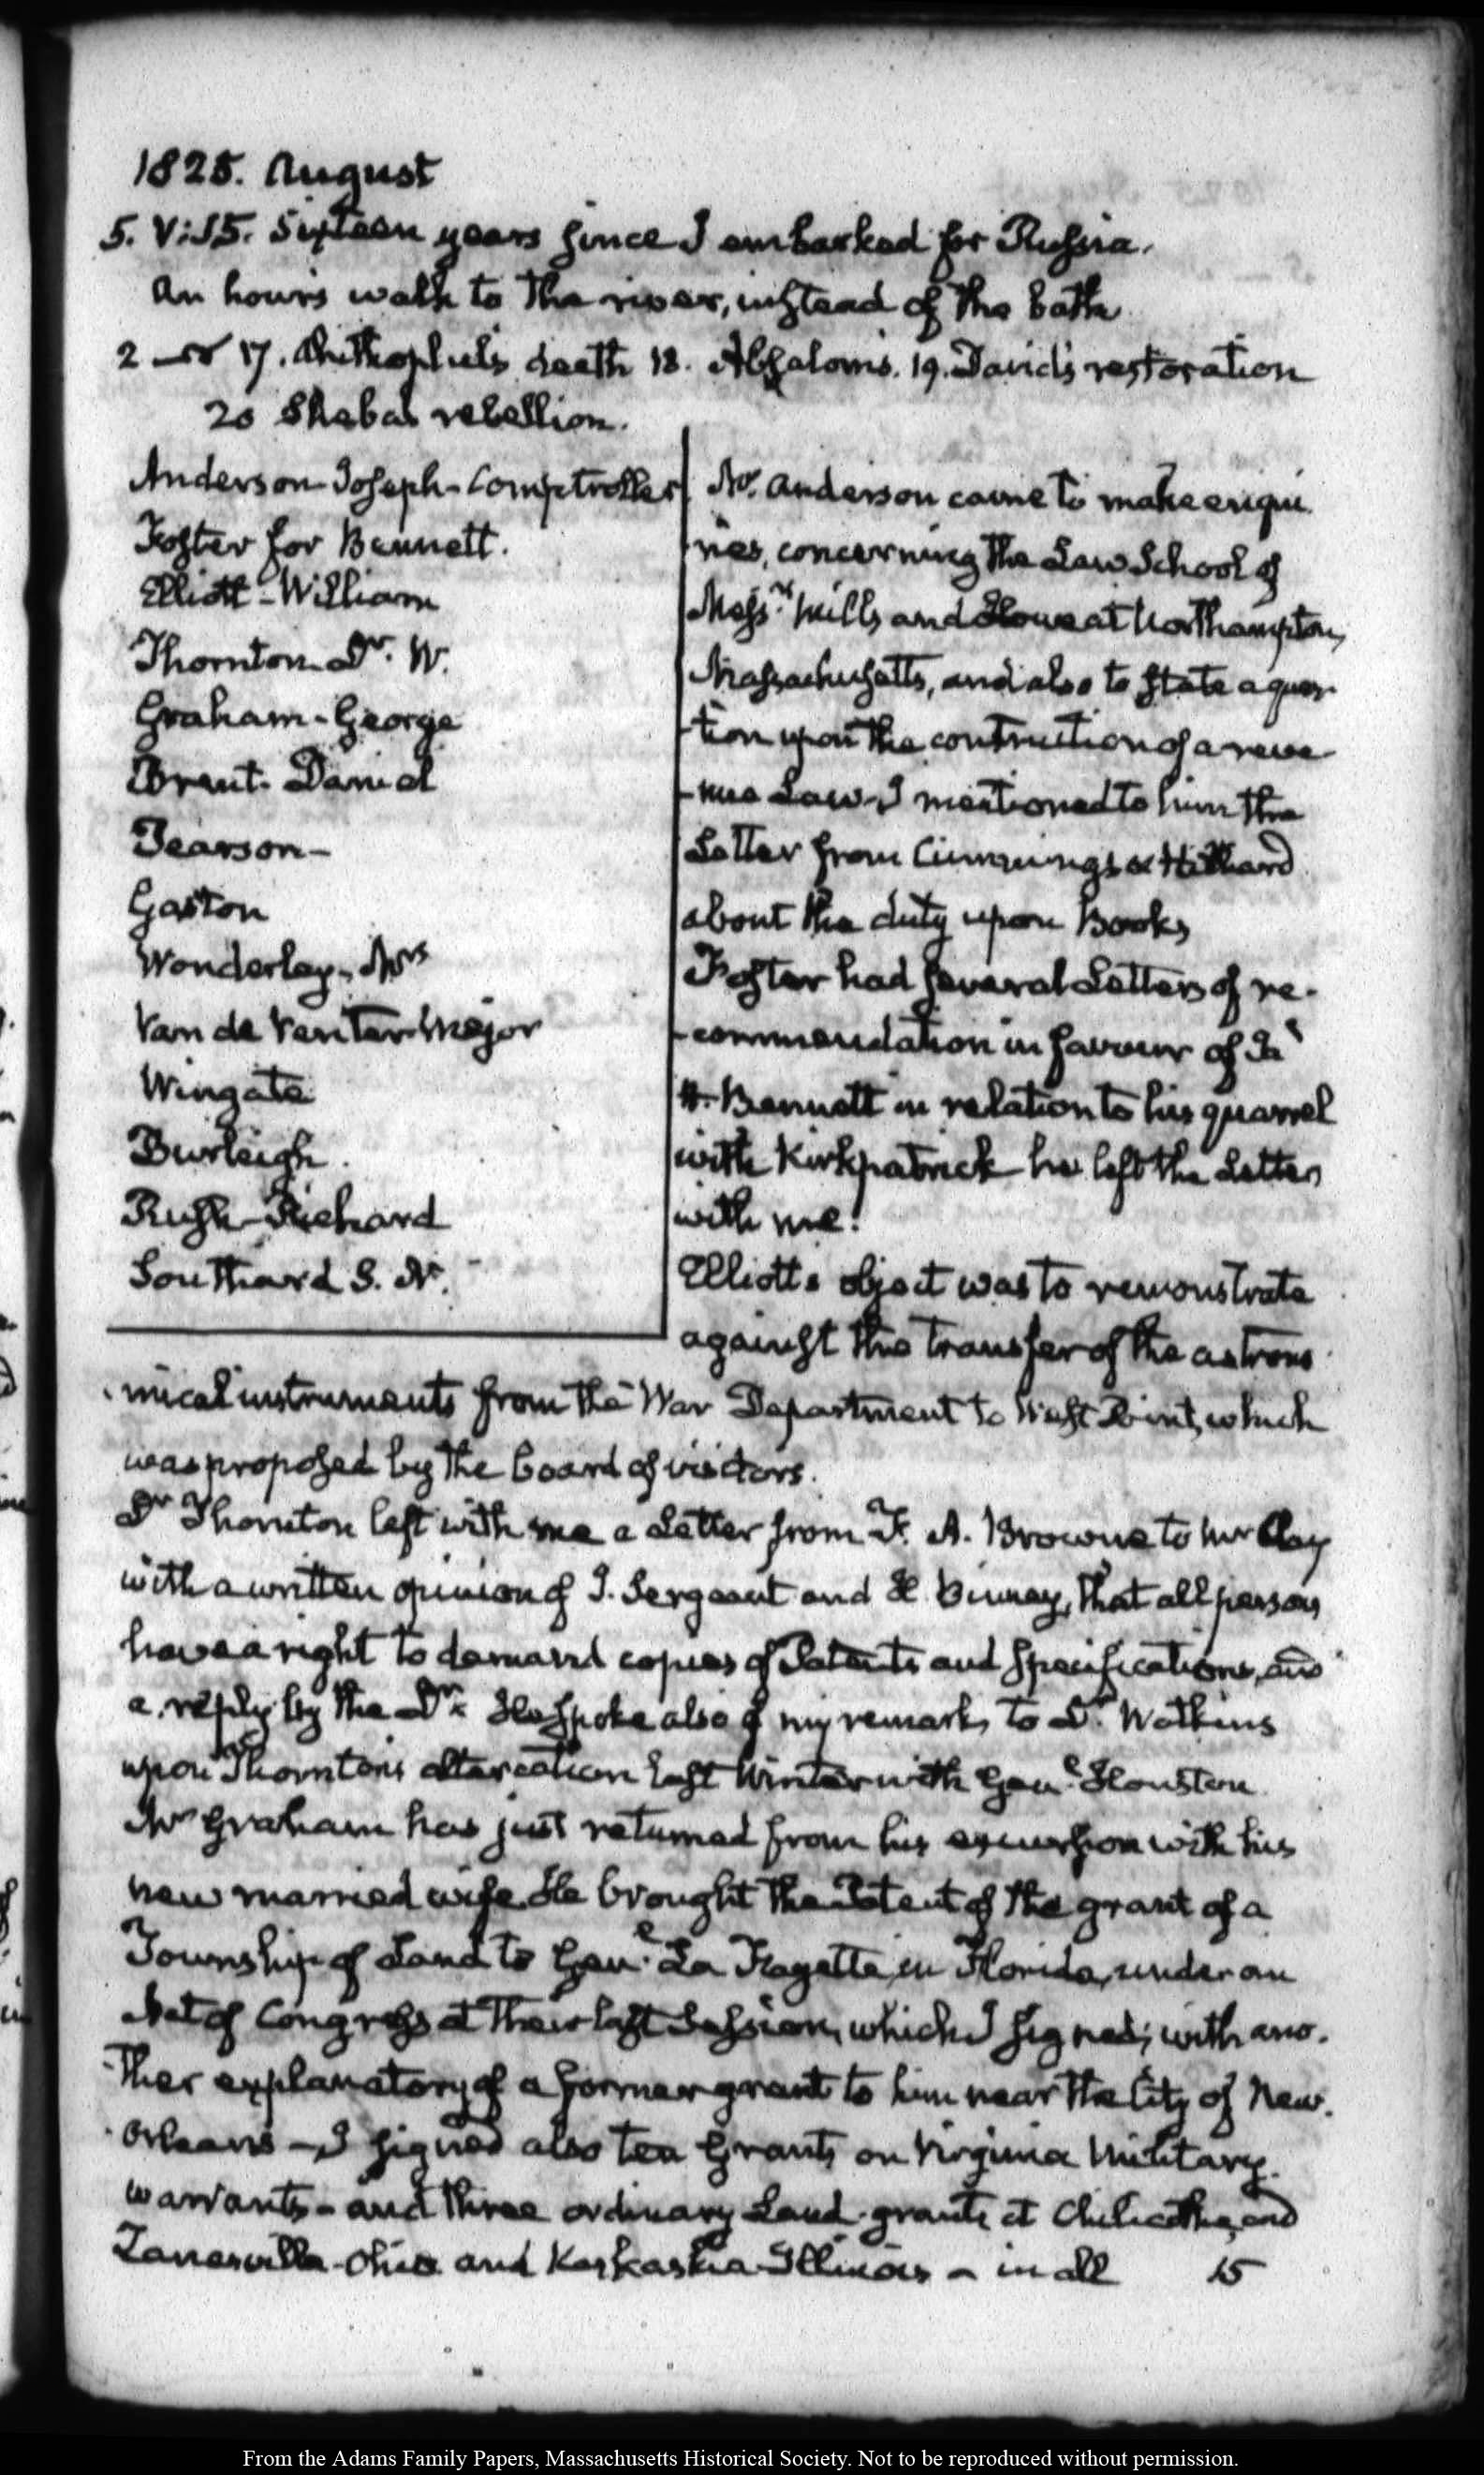 1825. August
5. V:15. Sixteen years since I embarked for Russia.
An hour's walk to the river, instead of the bath
2 17. Ahithophel's death 18. Absalom's. 19. David's restoration
20 Sheba's rebellion.
Anderson-Joseph-Comptroller
Foster for Bennett.
Elliott-William
Thornton-Dr. W.
Graham-George
Brent-Daniel
Pearson-
Gaston
Wonderley-Mrs
Van de Venter-Major
Wingate
Burleigh.
Rush-Richard
Southard S. L.
Mr. Anderson came to make enqui
ries, concerning the Law School of
Messrs. Mills and Howe at Northampton,
Massachusetts, and also to state a ques-
-tion upon the contruction of a reve-
-nue Law-I mentioned to him the
Letter from Cummings & Hilliard
about the duty upon Books,
Foster had several Letters of re-
-commendation in favour of Js
H. Bennett in relation to his quarrel
with Kirkpatrick he left the Letters
with me.
Elliott's object was to remonstrate
against the transfer of the astrono
-mical instruments from the War Department to West Point, which
was proposed by the board of visitors.
Dr Thornton left with me a Letter from P. A. Browne to Mr Clay
with a written opinion of J. Sergeant and H. Binney, that all persons
have a right to demand copies of Patents and Specifications, and
a reply by the Dr. He spoke also of my remarks to Dr. Watkins
upon Thornton's altercation last Winter with Genl. Houston
Mr Graham has just returned from his excursion with his
new married wife. He brought the Patent of the grant of a
Township of Land to Genl. La Fayette, in Florida, under an
Act of Congress at their last Session, which I signed; with ano-
-ther explanatory of a former grant to him near the City of New-
-Orleans-I signed also ten Grants on Virginia Military
warrants-and three ordinary Land-grants at Chilicothe, and
Zanesville-Ohio and Kaskaskia-Illinois-in all 15
From the Adams Family Papers, Massachusetts Historical Society. Not to be reproduced without permission.